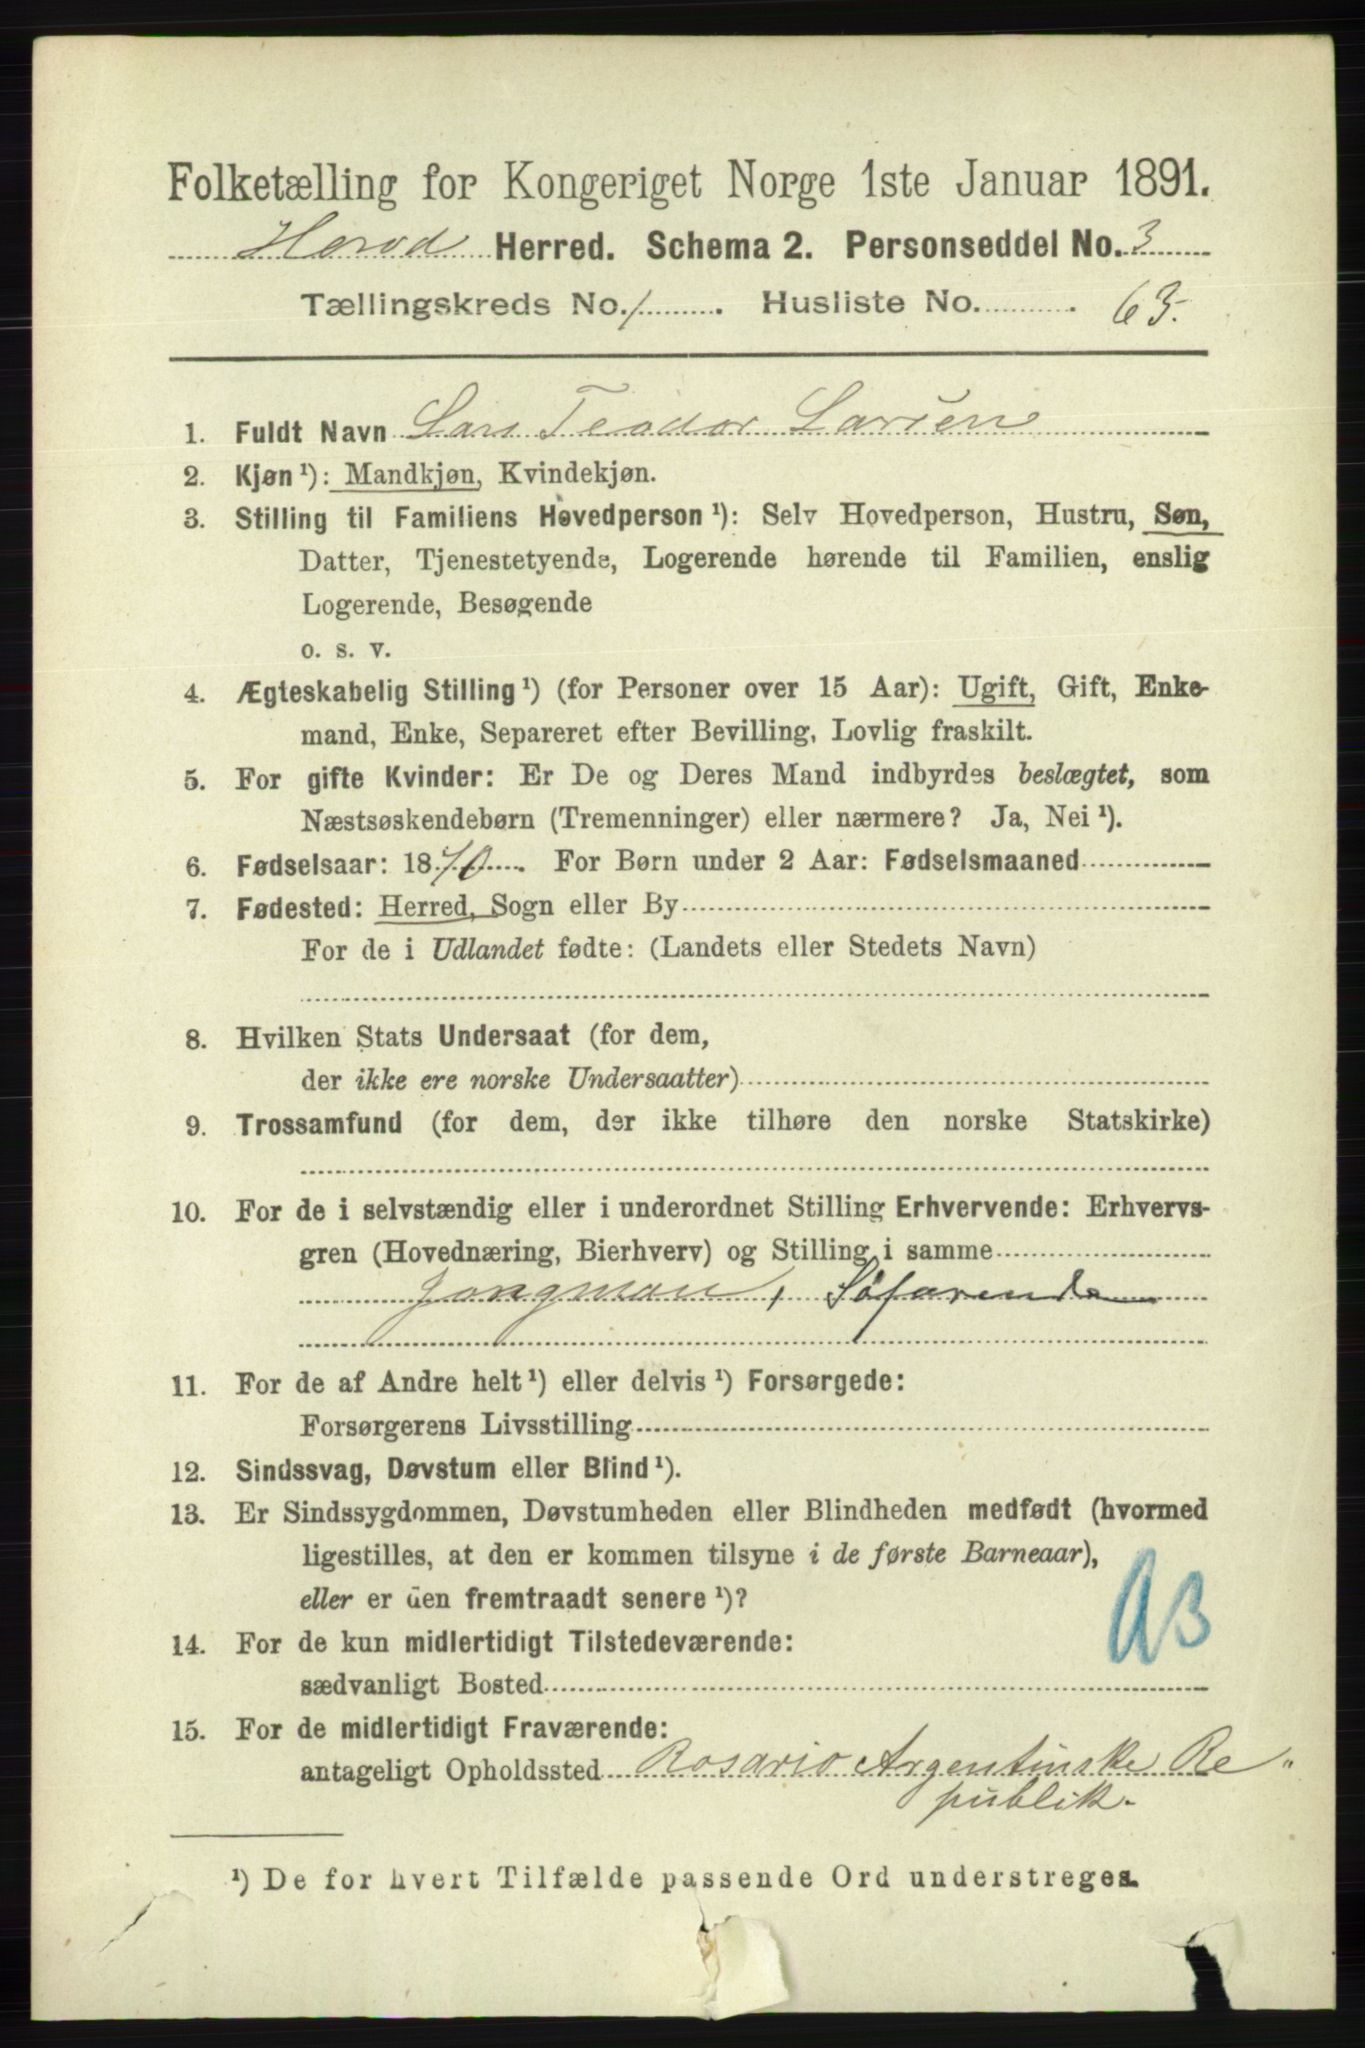 Folketælling for Kongeriget Norge 1ste Januar 1891.
Herød Herred. Schema 2. Personseddel No. 3
Tællingskreds No. 1. Husliste No. 63.
1. Fuldt Navn Lars Teodor Larsen
2. Kjøn¹): Mandkjøn, Kvindekjøn.
3. Stilling til Familiens Hovedperson¹): Selv Hovedperson, Hustru, Søn,
Datter, Tjenestetyende, Logerende hørende til Familien, enslig
Logerende, Besøgende
o. s. v.
4. Ægteskabelig Stilling¹) (for Personer over 15 Aar): Ugift, Gift, Enke-
mand, Enke, Separeret efter Bevilling, Lovlig fraskilt.
5. For gifte Kvinder: Er De og Deres Mand indbyrdes beslægtet, som
Næstsøskendebørn (Tremenninger) eller nærmere? Ja, Nei¹).
6. Fødselsaar: 1870. For Børn under 2 Aar: Fødselsmaaned
7. Fødested: Herred, Sogn eller By
For de i Udlandet fødte: (Landets eller Stedets Navn)
8. Hvilken Stats Undersaat (for dem,
der ikke ere norske Undersaatter)
9. Trossamfund (for dem, der ikke tilhøre den norske Statskirke)
10. For de i selvstændig eller i underordnet Stilling Erhvervende: Erhvervs-
gren (Hovednæring, Bierhverv) og Stilling i samme
Jongman, Søfarende
11. For de af Andre helt¹) eller delvis¹) Forsørgede:
Forsørgerens Livsstilling
12. Sindssvag, Døvstum eller Blind¹).
13. Er Sindssygdommen, Døvstumheden eller Blindheden medfødt (hvormed
ligestilles, at den er kommen tilsyne i de første Barneaar),
eller er den fremtraadt senere¹)?
14. For de kun midlertidigt Tilstedeværende:
sædvanligt Bosted
15. For de midlertidigt Fraværende:
antageligt Opholdssted Rosario Argentinske Re"
publik.
¹) De for hvert Tilfælde passende Ord understreges.